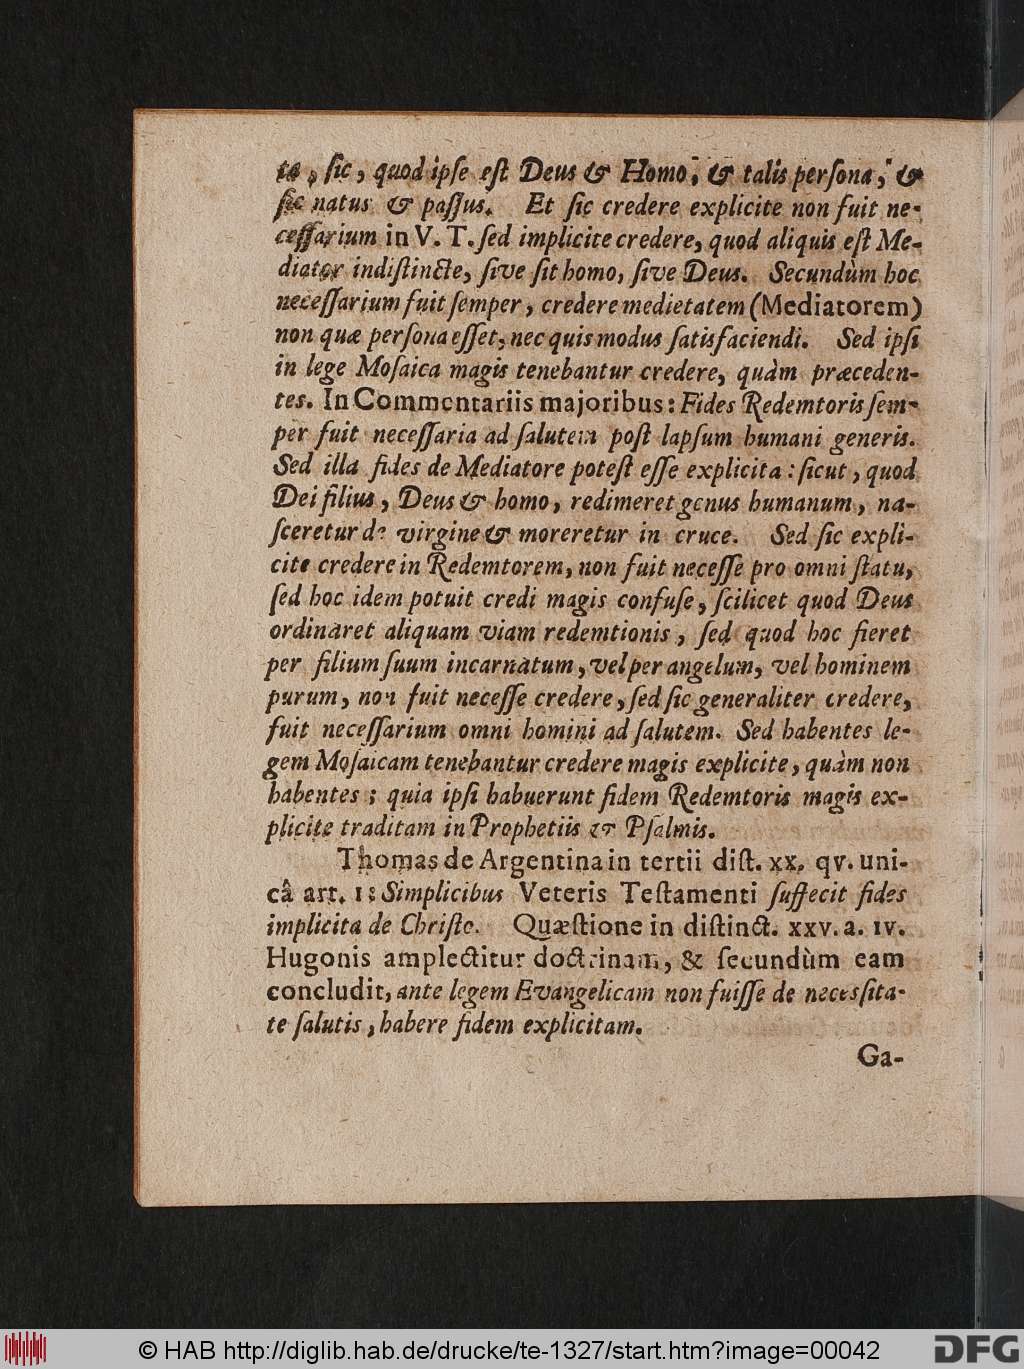 te, ſic, quod ipſe eſt Deus & Homo, & talis perſona, &
ſic natus & paſſus. Et ſic credere explicite non fuit ne-
ceſſarium in V. T. ſed implicite credere, quod aliquis eſt Me-
diator indiſtincte, ſive ſit homo, ſive Deus. Secundùm hoc
neceſſarium fuit ſemper, credere medietatem (Mediatorem)
non quæ perſona eſſet, nec quis modus ſatisfaciendi. Sed ipſi
in lege Moſaica magis tenebantur credere, quàm præceden-
tes. In Commentariis majoribus: Fides Redemtoris ſem-
per fuit neceſſaria ad ſalutem poſt lapſum humani generis.
Sed illa fides de Mediatore poteſt eſſe explicita: ſicut, quod
Dei filius, Deus & homo, redimeret genus humanum, na-
ſceretur de virgine & moreretur in cruce. Sed ſic expli-
cite credere in Redemtorem, non fuit neceſſe pro omni ſtatu,
ſed hoc idem potuit credi magis confuſe, ſcilicet quod Deus
ordinaret aliquam viam redemtionis, ſed quod hoc fieret
per filium ſuum incarnatum, vel per angelum, vel hominem
purum, non fuit neceſſe credere, ſed ſic generaliter credere,
fuit neceſſarium omni homini ad ſalutem. Sed habentes le-
gem Moſaicam tenebantur credere magis explicite, quàm non
habentes; quia ipſi habuerunt fidem Redemtoris magis ex-
plicite traditam in Prophetiis & Pſalmis.
Thomas de Argentina in tertii diſt. xx. qv. uni-
câ art. 1: Simplicibus Veteris Teſtamenti ſuffecit fides
implicita de Chriſto. Quæſtione in diſtinct. xxv. a. iv.
Hugonis amplectitur doctrinam, & ſecundùm eam
concludit, ante legem Evangelicam non fuiſſe de necesſita-
te ſalutis, habere fidem explicitam.
Ga-
© HAB http://diglib.hab.de/drucke/te-1327/start.htm?image=00042
DFG